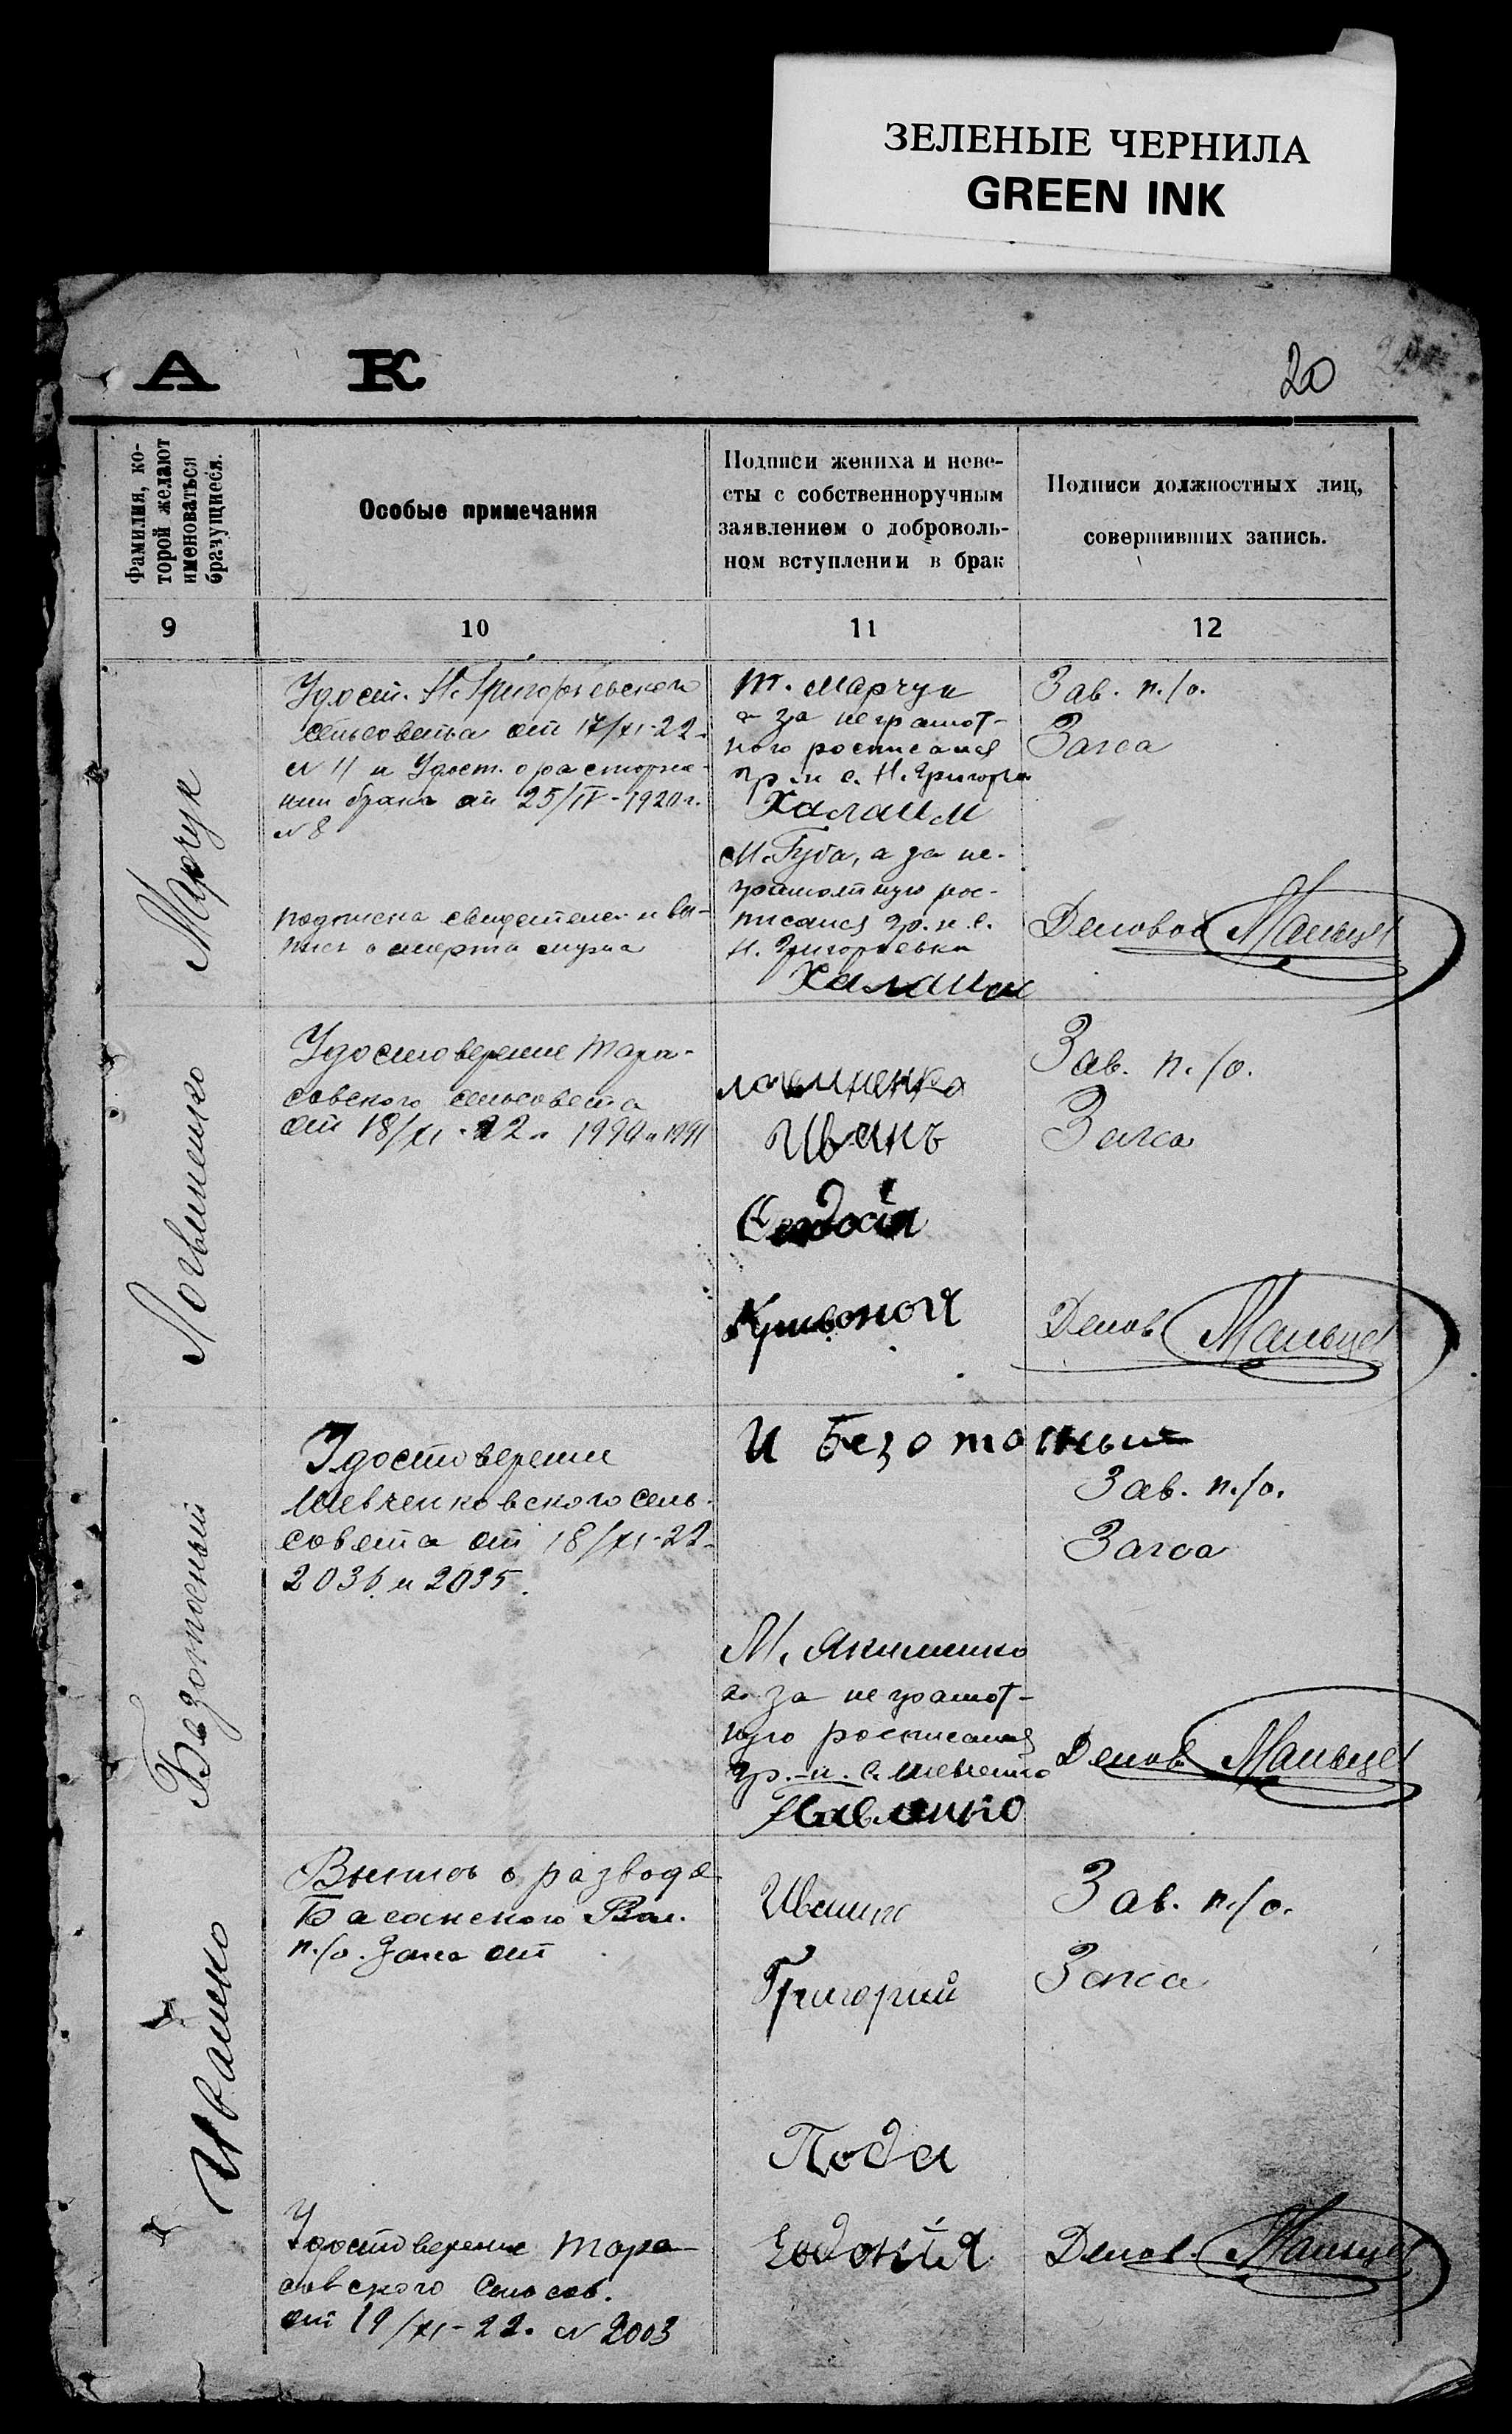 ЗЕЛЕНЫЕ ЧЕРНИЛА
GREEN INK
А К
20
Фамилия, ко-
торой желают
именоваться
брачущиеся.
Особые примечания
Подписи жениха и неве-
сты с собственноручным
заявлением о доброволь-
ном вступлении в брак
Подписи должностных лиц,
совершивших запись.
9
10
11
12
Марчук
Удост. Н. Григорьевского
сельсовета от 17/XI-22
N 11 и Удост. о расторже-
нии брака от 25/IV-1920 г.
N 8
о смерти мужа
Т. Марчук
а за неграмот-
ного росписался
гр-н с. Н. Григорьев
Халаим
М. Губа, а за не-
грамотную рос-
писался гр-н с.
Н. Григорьевки
Халаим
Зав. п./о.
Загса
Делопов Мальцев
Логвиненко
Удостоверение Тара-
совского сельсовета
от 18/XI-22 1990 и 1991
Иванъ
Кривоноя
Зав. п./о.
Загса
Делов Мальцев
Безотосный
Удостоверение
Шевченковского сель-
совета от 18/XI-22
2036 и 2035.
И Безотосный
М. Якименко
а за неграмот-
ную росписался
гр-н с. Шевченко
Павленко
Зав. п./о.
Загса
Делов Мальцев
Ивашко
Выпись о разводе
Басанского Вол.
п./о. Загса от
Удостоверение Тара-
совского Сельсов.
от 19/XI-22. N 2003
Григорий
Пода
Зав. п./о.
Загса
Делов Мальцев